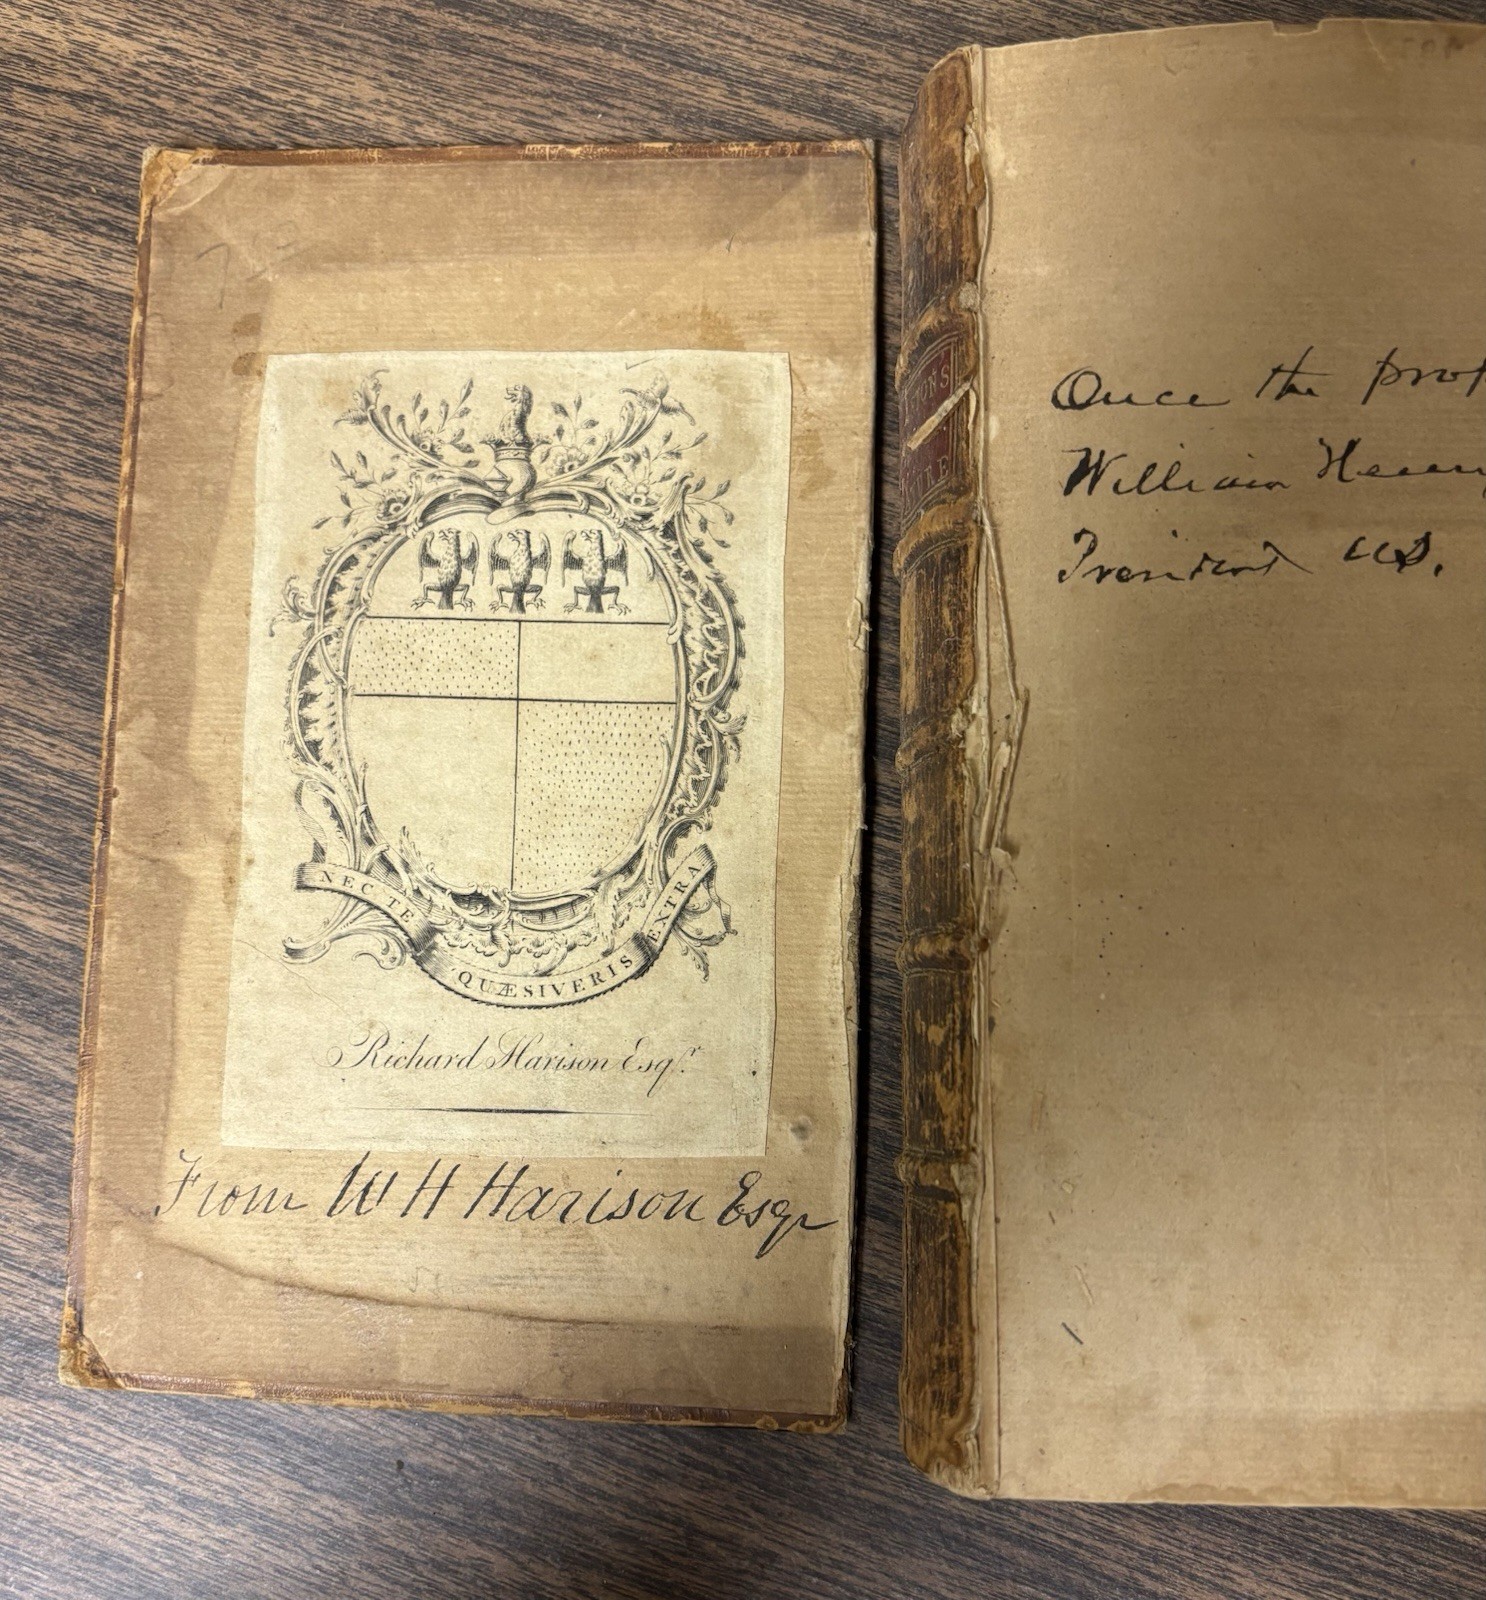 NEC TE QUÆSIVERIS EXTRA.
Richard Harison Esqr.
From W H Harison Esqr
Once the prop
William Henry
President US.